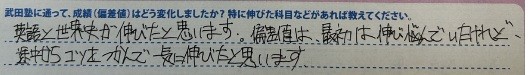 武田塾に通って、成績(偏差値)はどう変化しましたか?特に伸びた科目などがあれば教えてください。
英語と世界史が伸びたと思います。偏差値は、最初は伸び悩んでいたけれど
途中からコツをつかんで一気に伸びたと思います